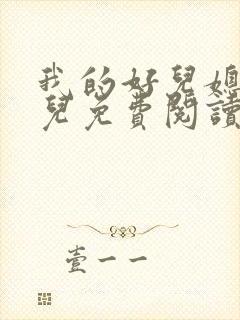 我的好兒媳
兒免費閱讀
壹一一